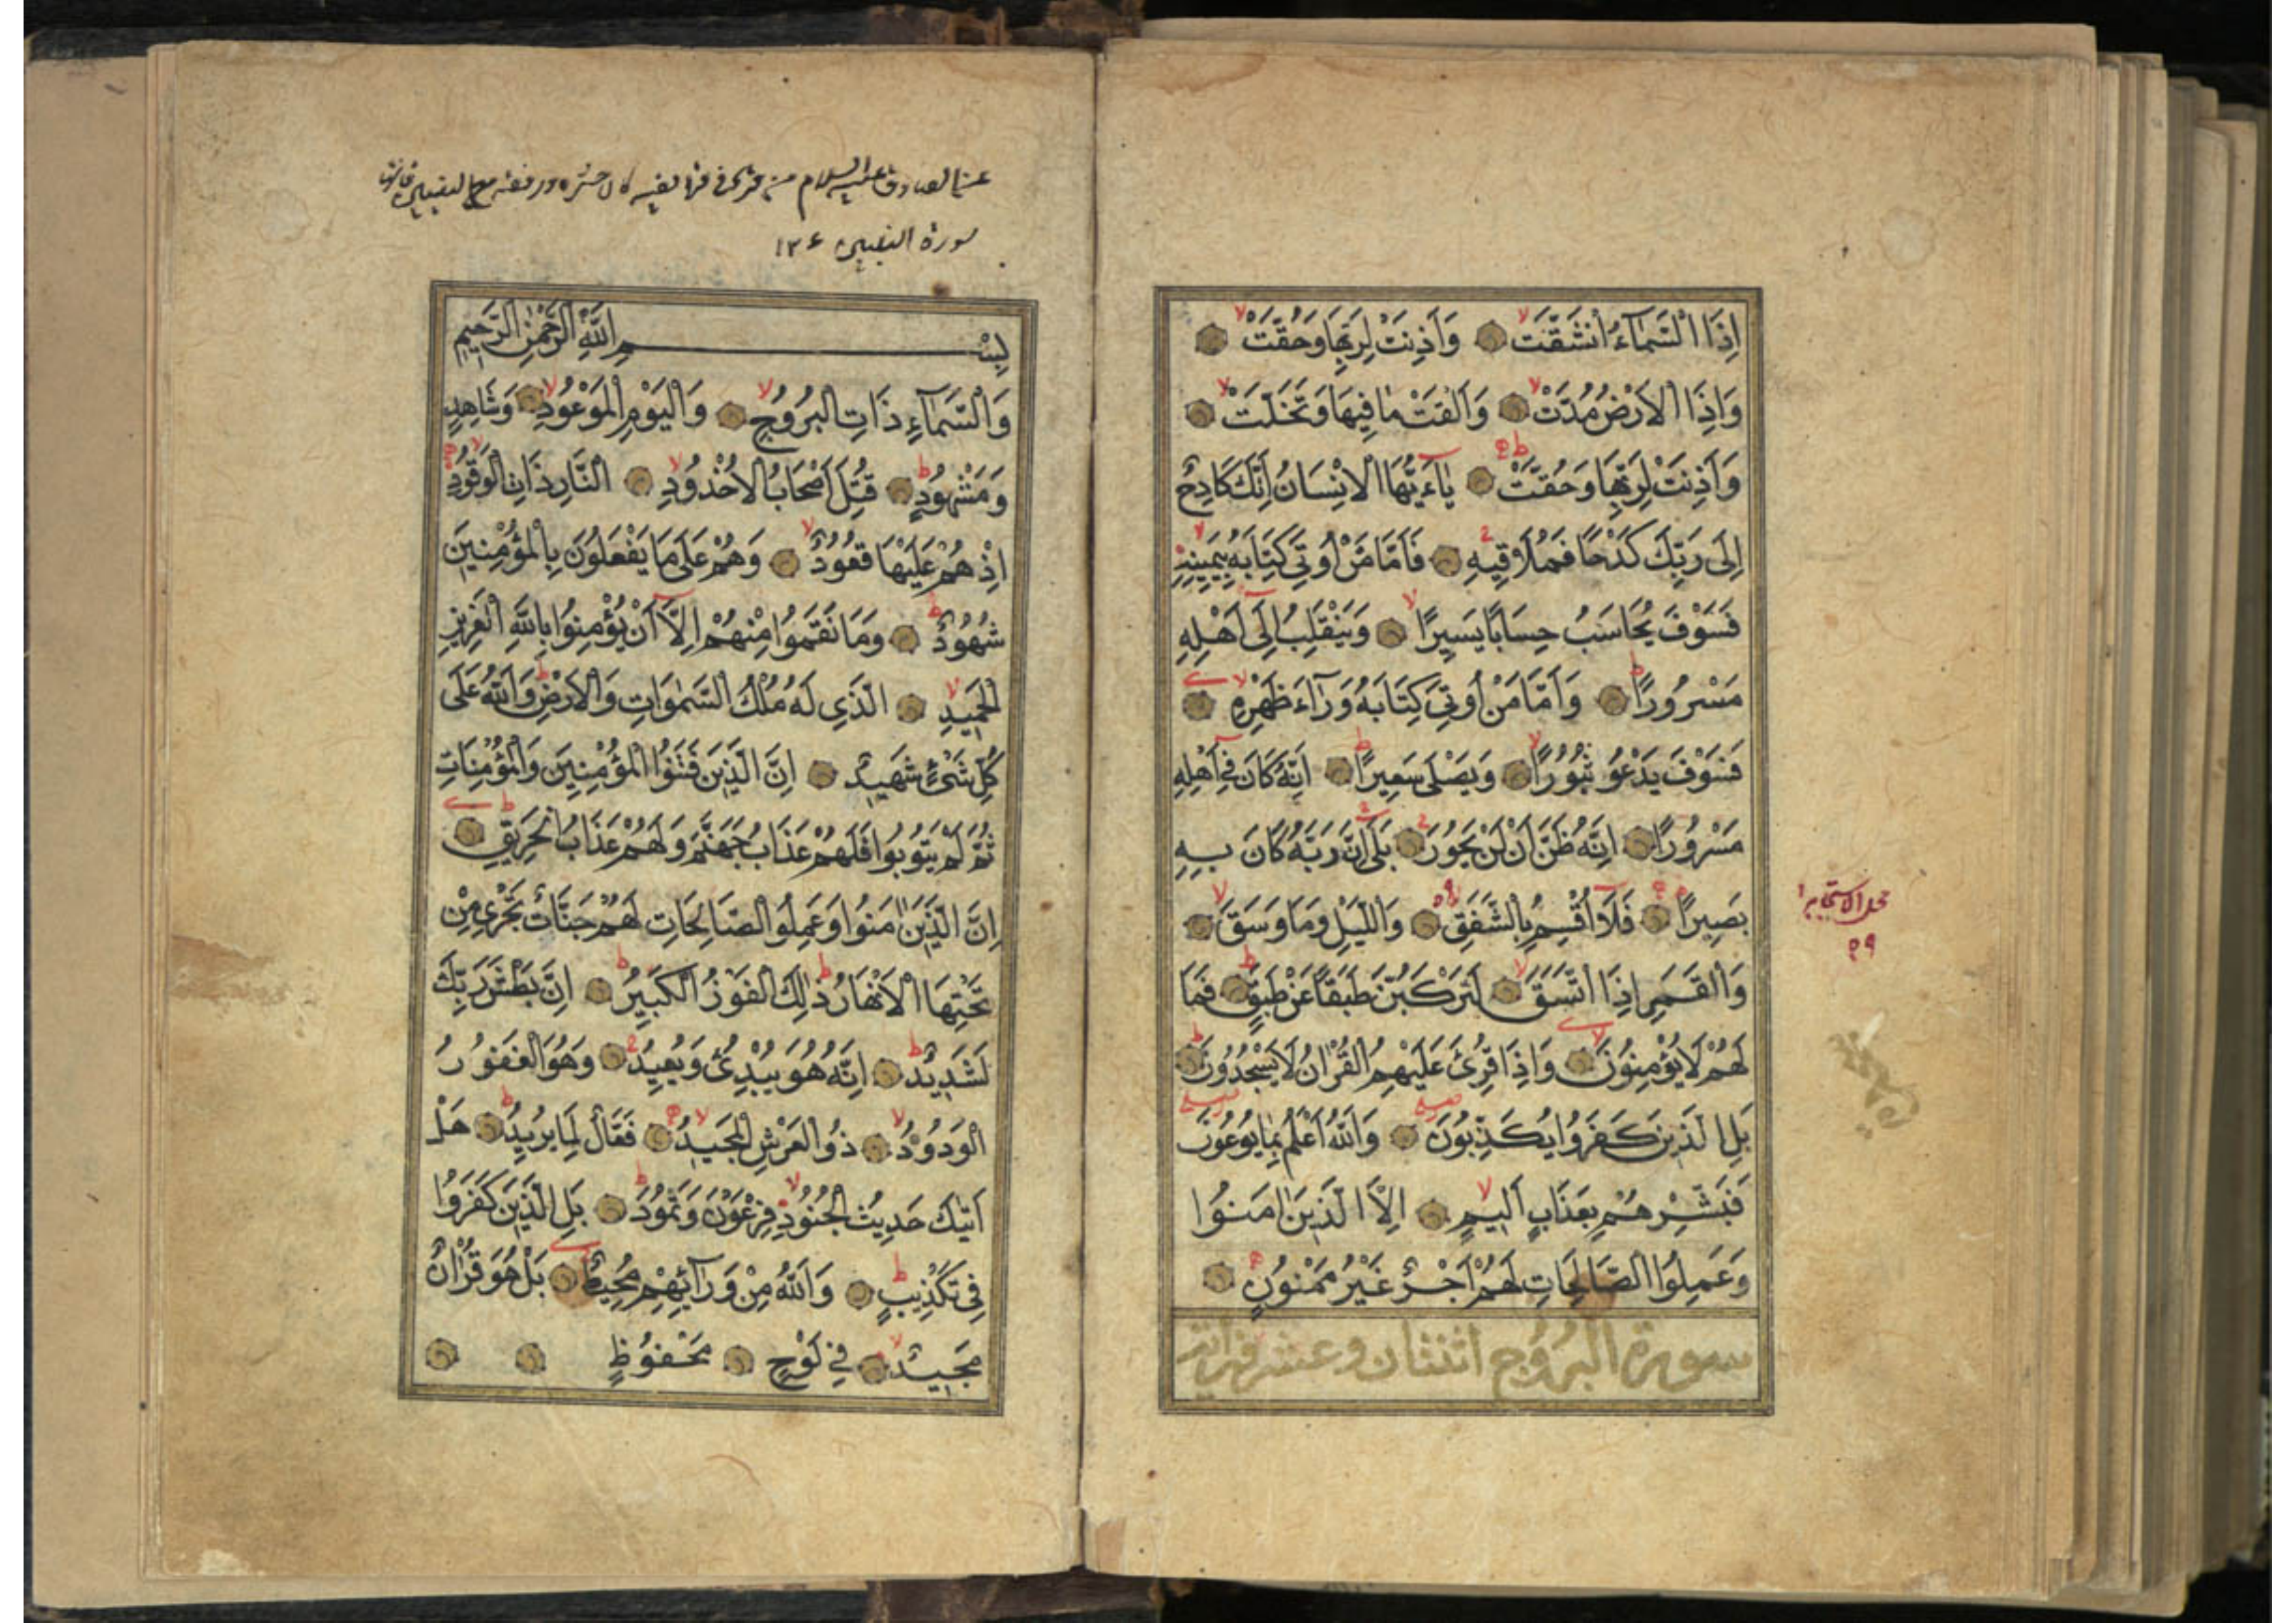 اِذَا السَّمَآءُ انْشَقَّتْ وَاَذِنَتْ لِرَبِّهَا وَحُقَّتْ
وَاِذَا الْاَرْضُ مُدَّتْ وَاَلْقَتْ مَا فِيهَا وَتَخَلَّتْ
وَاَذِنَتْ لِرَبِّهَا وَحُقَّتْ يَآءَيُّهَا الْاِنْسَانُ اِنَّكَ كَادِحٌ
اِلٰى رَبِّكَ كَدْحًا فَمُلَاقِيهِ فَاَمَّا مَنْ اُوتِيَ كِتَابَهُ بِيَمِينِهِ
فَسَوْفَ يُحَاسَبُ حِسَابًا يَسِيرًا وَيَنْقَلِبُ اِلٰٓى اَهْلِهِ
مَسْرُورًا وَاَمَّا مَنْ اُوتِيَ كِتَابَهُ وَرَآءَ ظَهْرِهِ
فَسَوْفَ يَدْعُو ثُبُورًا وَيَصْلٰى سَعِيرًا اِنَّهُ كَانَ فِٓى اَهْلِهِ
مَسْرُورًا اِنَّهُ ظَنَّ اَنْ لَنْ يَحُورَ بَلٰٓى اِنَّ رَبَّهُ كَانَ بِهِ
بَصِيرًا فَلَآ اُقْسِمُ بِالشَّفَقِ وَاللَّيْلِ وَمَا وَسَقَ
وَالْقَمَرِ اِذَا اتَّسَقَ لَتَرْكَبُنَّ طَبَقًا عَنْ طَبَقٍ فَمَا
لَهُمْ لَا يُؤْمِنُونَ وَاِذَا قُرِئَ عَلَيْهِمُ الْقُرْاٰنُ لَا يَسْجُدُونَ
بَلِ الَّذِينَ كَفَرُوا يُكَذِّبُونَ وَاللهُ اَعْلَمُ بِمَا يُوعُونَ
فَبَشِّرْهُمْ بِعَذَابٍ اَلِيمٍ اِلَّا الَّذِينَ اٰمَنُوا
وَعَمِلُوا الصَّالِحَاتِ لَهُمْ اَجْرٌ غَيْرُ مَمْنُونٍ
سورة البروج اثنتان وعشرون اية
٥٩
عن الصادق عليه السلام من قرء في فرائضه كان حشره مع النبيين
سورة النبيين
بِسْمِ اللهِ الرَّحْمٰنِ الرَّحِيمِ
وَالسَّمَآءِ ذَاتِ الْبُرُوجِ وَالْيَوْمِ الْمَوْعُودِ وَشَاهِدٍ
وَمَشْهُودٍ قُتِلَ اَصْحَابُ الْاُخْدُودِ النَّارِ ذَاتِ الْوَقُودِ
اِذْ هُمْ عَلَيْهَا قُعُودٌ وَهُمْ عَلٰى مَا يَفْعَلُونَ بِالْمُؤْمِنِينَ
شُهُودٌ وَمَا نَقَمُوا مِنْهُمْ اِلَّآ اَنْ يُؤْمِنُوا بِاللهِ الْعَزِيزِ
الْحَمِيدِ الَّذِي لَهُ مُلْكُ السَّمٰوَاتِ وَالْاَرْضِ وَاللهُ عَلٰى
كُلِّ شَيْءٍ شَهِيدٌ اِنَّ الَّذِينَ فَتَنُوا الْمُؤْمِنِينَ وَالْمُؤْمِنَاتِ
ثُمَّ لَمْ يَتُوبُوا فَلَهُمْ عَذَابُ جَهَنَّمَ وَلَهُمْ عَذَابُ الْحَرِيقِ
اِنَّ الَّذِينَ اٰمَنُوا وَعَمِلُوا الصَّالِحَاتِ لَهُمْ جَنَّاتٌ تَجْرِي مِنْ
تَحْتِهَا الْاَنْهَارُ ذٰلِكَ الْفَوْزُ الْكَبِيرُ اِنَّ بَطْشَ رَبِّكَ
لَشَدِيدٌ اِنَّهُ هُوَ يُبْدِئُ وَيُعِيدُ وَهُوَ الْغَفُورُ
الْوَدُودُ ذُو الْعَرْشِ الْمَجِيدُ فَعَّالٌ لِمَا يُرِيدُ هَلْ
اَتٰيكَ حَدِيثُ الْجُنُودِ فِرْعَوْنَ وَثَمُودَ بَلِ الَّذِينَ كَفَرُوا
فِي تَكْذِيبٍ وَاللهُ مِنْ وَرَآئِهِمْ مُحِيطٌ بَلْ هُوَ قُرْاٰنٌ
مَجِيدٌ فِي لَوْحٍ مَحْفُوظٍ